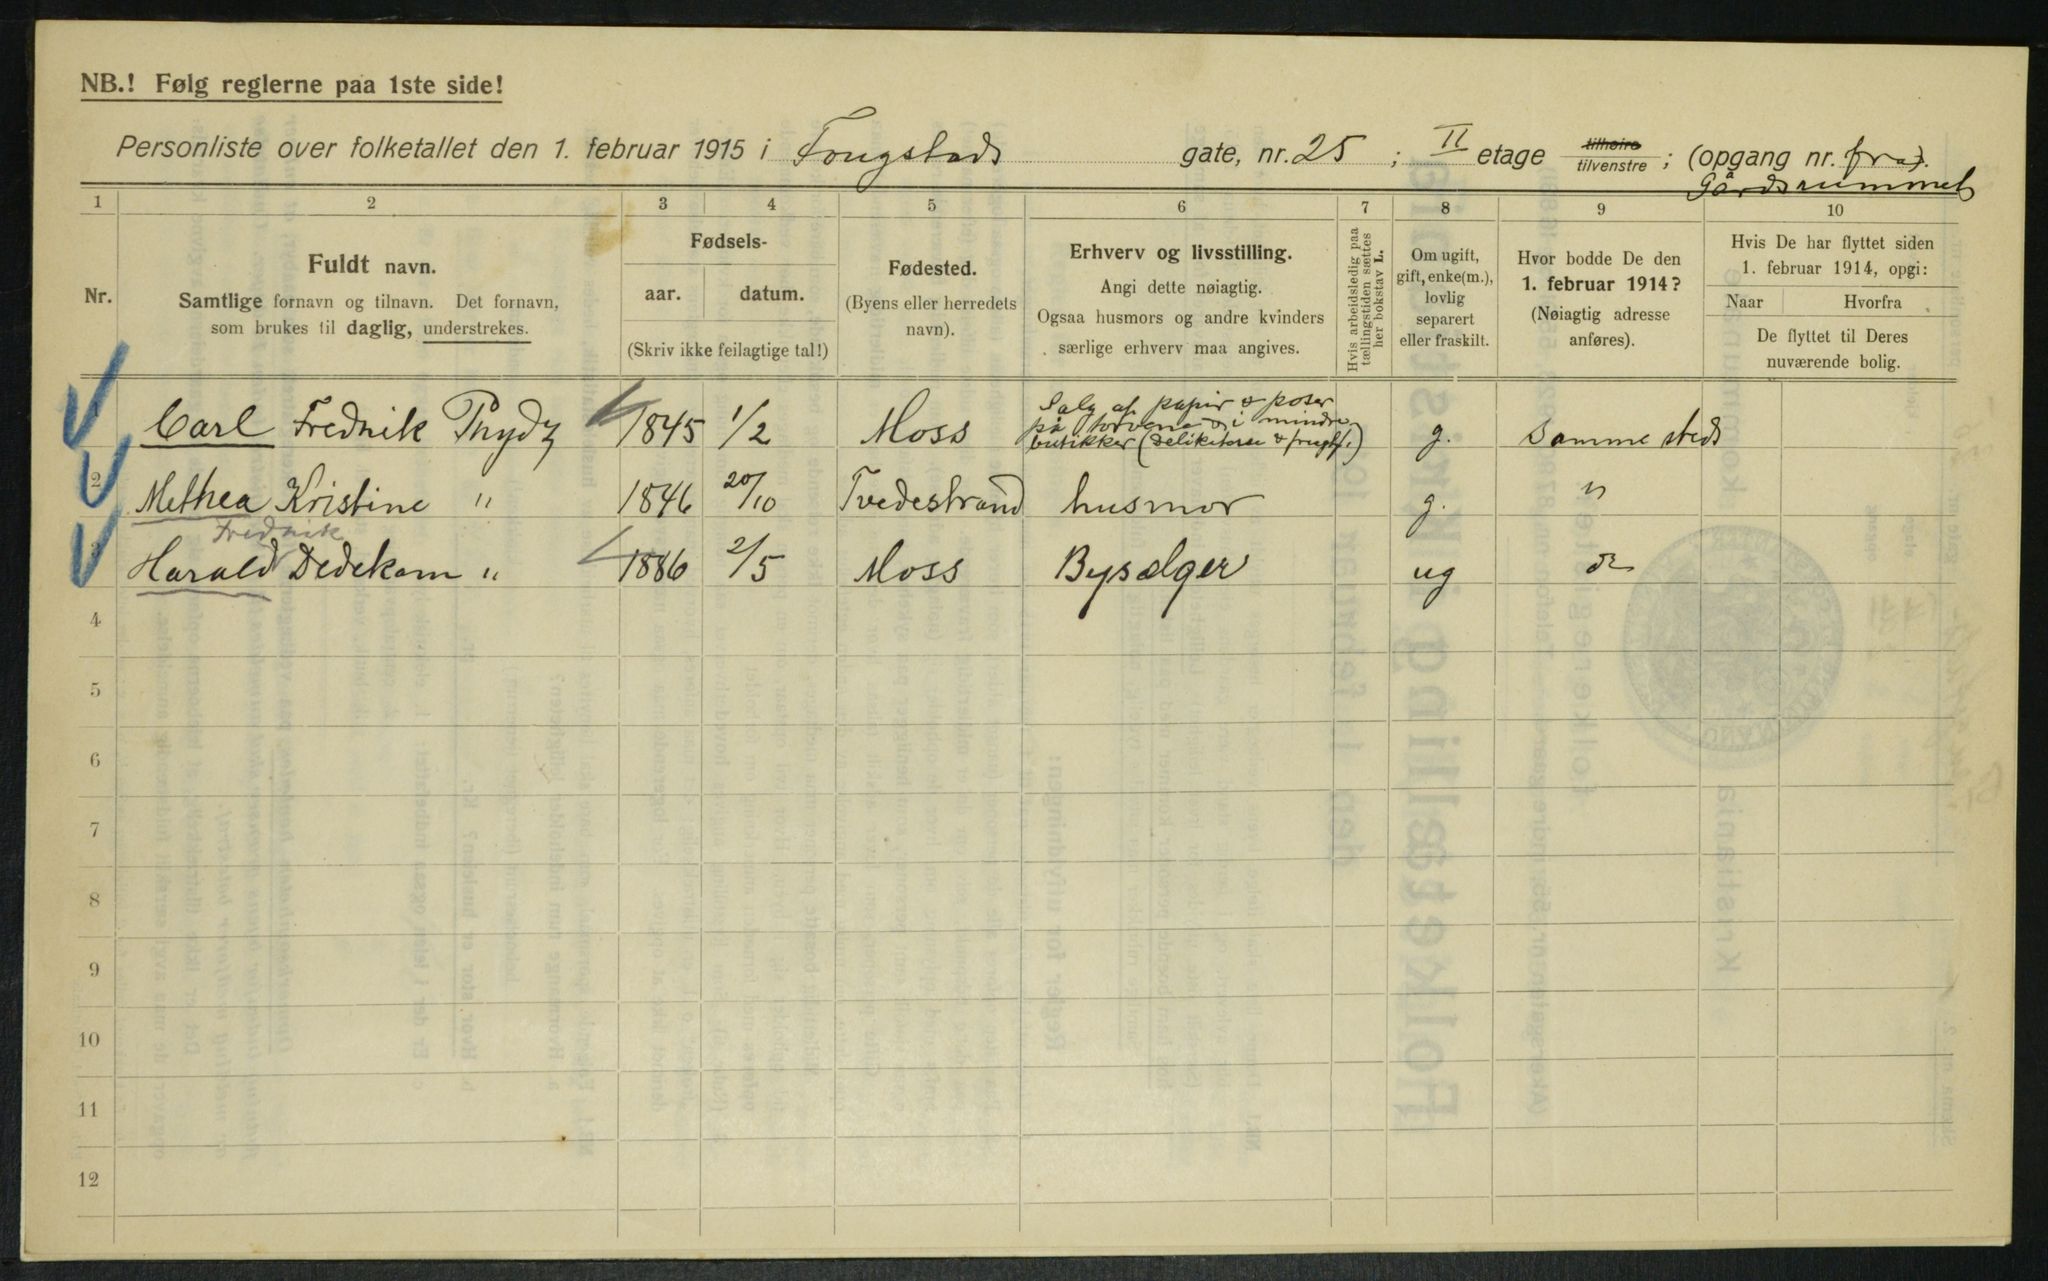 NB.! Følg reglerne paa 1ste side!
Personliste over folketallet den 1. februar 1915 i Fougstads gate, nr. 25 ; II etage tilhøire tilvenstre ; (opgang nr. fra).
Gårdsrummet
1 2 3 4 5 6 7 8 9 10
Nr.
Fuldt navn.
Samtlige fornavn og tilnavn. Det fornavn,
som brukes til daglig, understrekes.
Fødsels-
aar. datum.
(Skriv ikke feilagtige tal!)
Fødested.
(Byens eller herredets
navn).
Erhverv og livsstilling.
Angi dette nøiagtig.
Ogsaa husmors og andre kvinders
særlige erhverv maa angives.
Hvis arbeidsledig paa
tællingstiden sættes
her bokstav L.
Om ugift,
gift, enke(m.),
lovlig
separert
eller fraskilt.
Hvor bodde De den
1. februar 1914?
(Nøiagtig adresse
anføres).
Hvis De har flyttet siden
1. februar 1914, opgi:
Naar Hvorfra
De flyttet til Deres
nuværende bolig.
Salg af papir & poser
på torvene & i mindre
butikker (Delikatesse & frugtf.)
Carl Fredrik Thydz 1845 1/2 Moss g. Samme steds
2 Methea Kristine " 1846 20/10 Tvedestrand husmor g. "
Fredrik
3 Harald Dedekam " 1886 2/5 Moss Bysælger ug
4
5
6
7
8
9
10
11
12